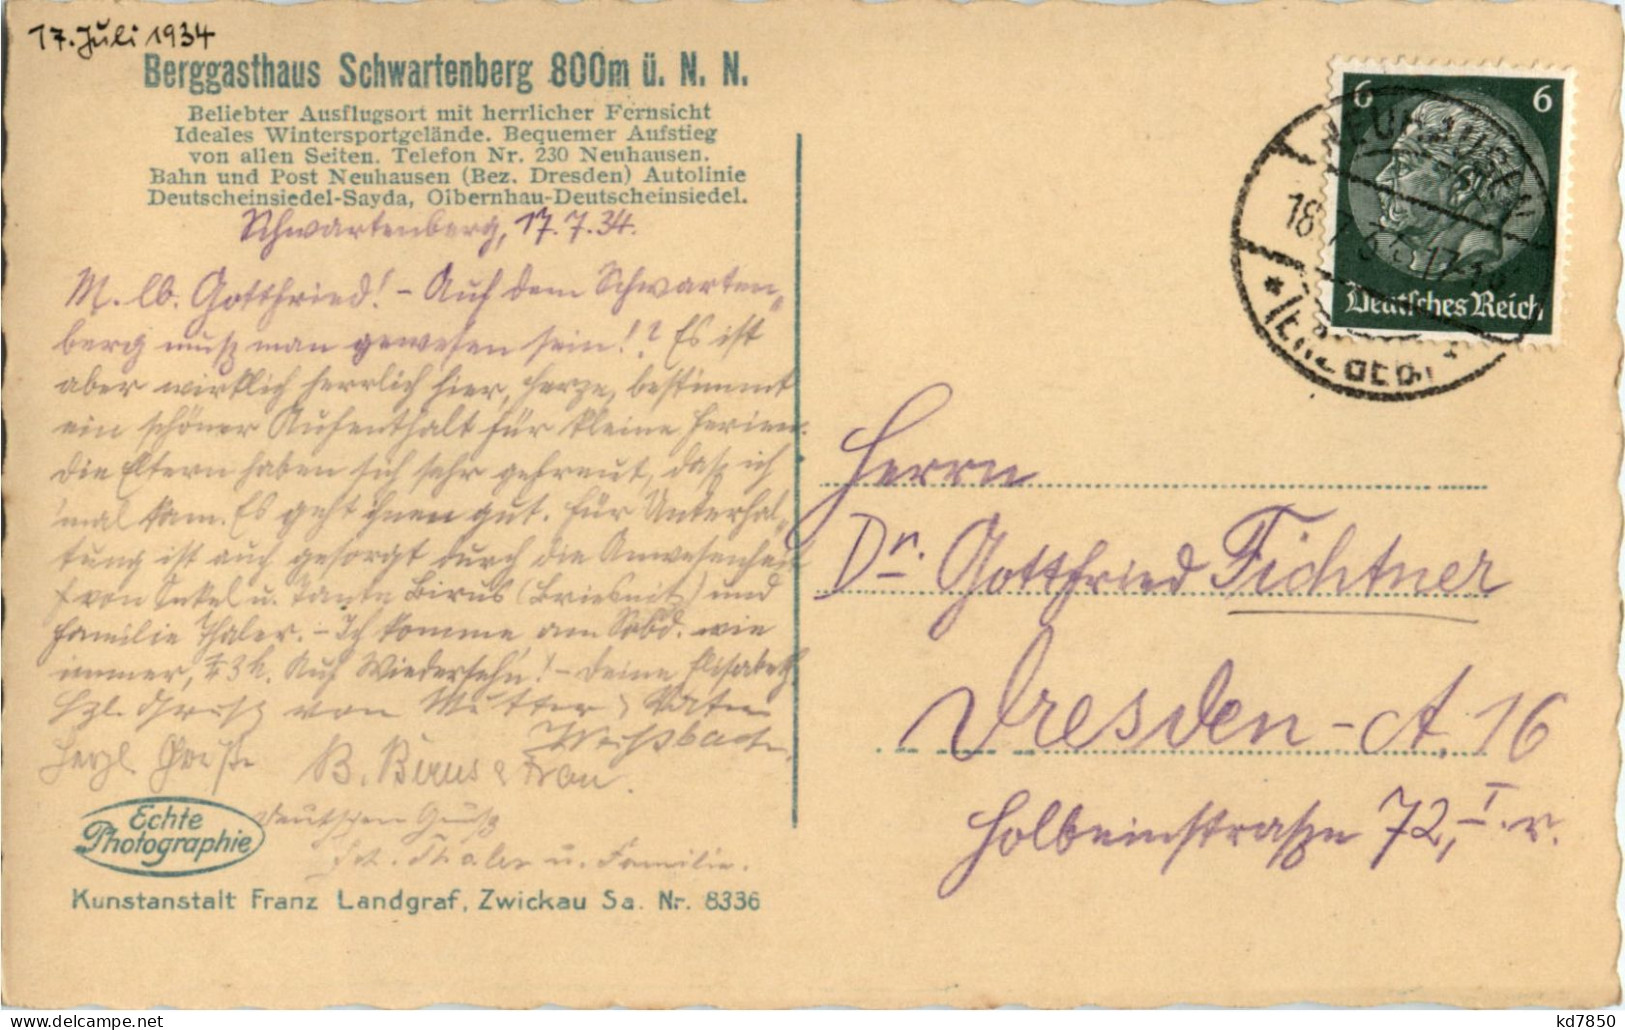 17. Juli 1934
Berggasthaus Schwartenberg 800m ü. N. N.
Beliebter Ausflugsort mit herrlicher Fernsicht
Ideales Wintersportgelände. Bequemer Aufstieg
von allen Seiten. Telefon Nr. 230 Neuhausen.
Bahn und Post Neuhausen (Bez. Dresden) Autolinie
Deutscheinsiedel-Sayda, Olbernhau-Deutscheinsiedel.
Schwartenberg, 17.7.34.
M. lb. Gottfried! - Auf dem Schwarten-
berg muß man gewesen sein!? Es ist
aber wirklich herrlich hier, bestimmt
ein schöner Aufenthalt für kleine Ferien.
Die Eltern haben sich sehr gefreut, daß ich
'mal kam. Es geht ihnen gut. Für Unterhal-
tung ist auch gesorgt durch die Anwesenheit
von Onkel u. Tante Birus (Briesnitz) und
Familie Thaler. - Ich komme am Sbd. wie
immer, 3h. Auf Wiedersehn! - Deine Elisabeth
Hzl. Gruß von Mutter & Vater
Weißbach
Herzl. Grüße B. Birus & Frau.
Deutschen Gruß
Thaler u. Familie.
Echte
Photographie
Kunstanstalt Franz Landgraf, Zwickau Sa. Nr. 8336
6 6
Deutsches Reich
NEUHAUSEN
18.7.34 17
(ERZGEB.)
Herrn
Dr. Gottfried Fichtner
Dresden-A. 16
Holbeinstraße 72, I. r.
kd7850